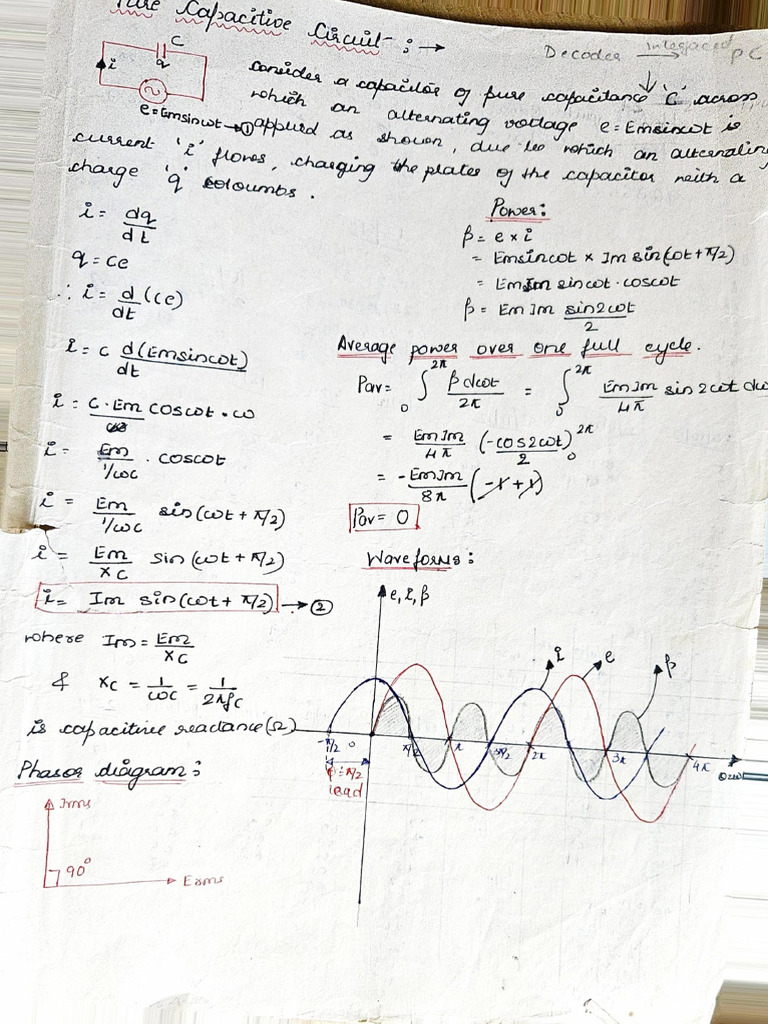 Pure Capacitive Circuit :→
Decoder Interfaced μC
C
i
q
e = Emsinωt →①
Consider a capacitor of pure capacitance 'C' across
which an alternating voltage e = Emsinωt is
applied as shown, due to which an alternating
current 'i' flows, charging the plates of the capacitor with a
charge 'q' coloumbs.
i = dq/dt
q = ce
∴ i = d/dt (ce)
i = c d(Emsinωt)/dt
i = C·Em cosωt · ω
i = Em/(1/ωc) · cosωt
i = Em/(1/ωc) sin(ωt + π/2)
i = Em/Xc sin(ωt + π/2)
i = Im sin(ωt + π/2) → ②
where Im = Em/Xc
& Xc = 1/ωc = 1/2πfc
is capacitive reactance(Ω)
Phasor diagram:
Irms
90°
Erms
Power:
p = e × i
= Emsinωt × Im sin(ωt + π/2)
= EmIm sinωt · cosωt
p = EmIm sin2ωt/2
Average power over one full cycle.
Pav = ∫₀^2π p dωt/2π = ∫₀^2π EmIm/4π sin2ωt dω
= EmIm/4π (-cos2ωt/2)₀^2π
= -EmIm/8π (-1+1)
Pav = 0
Waveforms:
e, i, p
i e p
-π/2 0 π/2 π 3π/2 2π 3π 4π
φ=π/2
lead